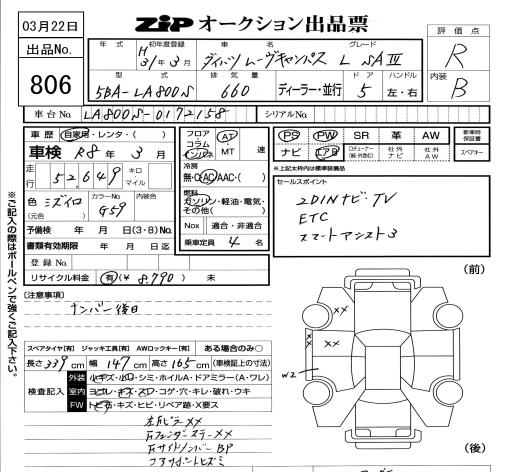 03月22日
ZIP オークション出品票
出品No.
806
年式
初年度登録
車名
グレード
H 31年3月
ダイハツ ムーヴキャンバス
L SAⅢ
型式
排気量
ディーラー・並行
ドア
ハンドル
5BA-LA800S
660
5
左・右
評価点
R
内装
B
車台No.
LA800S-0172158
シリアルNo.
車歴
自家用・レンタ・( )
車検 R8年 3月
走行
52,649
キロ
マイル
色
ミズイロ
(元色)
カラーNo.
G59
内装色
予備検 年 月 日(3・8)No.
書類有効期限 年 月 日迄
登録No.
リサイクル料金 有(¥ 8,790 ) 未
フロア
コラム
インパネ
AT
MT
速
冷房
無・C・AC・AAC・( )
燃料
ガソリン・軽油・電気・
その他( )
Nox
適合・非適合
乗車定員 4 名
PS
PW
SR
革
AW
ナビ
エアB
社外ナビ
社外AW
新車時保証書
スペアキー
※上記太枠内は標準装備品
セールスポイント
2DINナビ TV
ETC
スマートアシスト3
(注意事項)
ナンバー後日
※ご記入の際はボールペンで強くご記入下さい。
スペアタイヤ[有] ジャッキ工具[有] AWロックキー[有] ある場合のみ○
長さ 339 cm 幅 147 cm 高さ 165 cm (車検証上の寸法)
検査記入
外装
小キズ・小凹・シミ・ホイルA・ドアミラー(A・ワレ)
室内
ヨゴレ・キズ・スレ・コゲ・穴・キレ・破れ・ウキ
FW
トビ石・キズ・ヒビ・リペア跡・X要ス
左Fピラーメメ
Fフェンダーステーメメ
FサイドメンバーBP
コアサポートヒズミ
(前)
XX
XX
W2
(後)